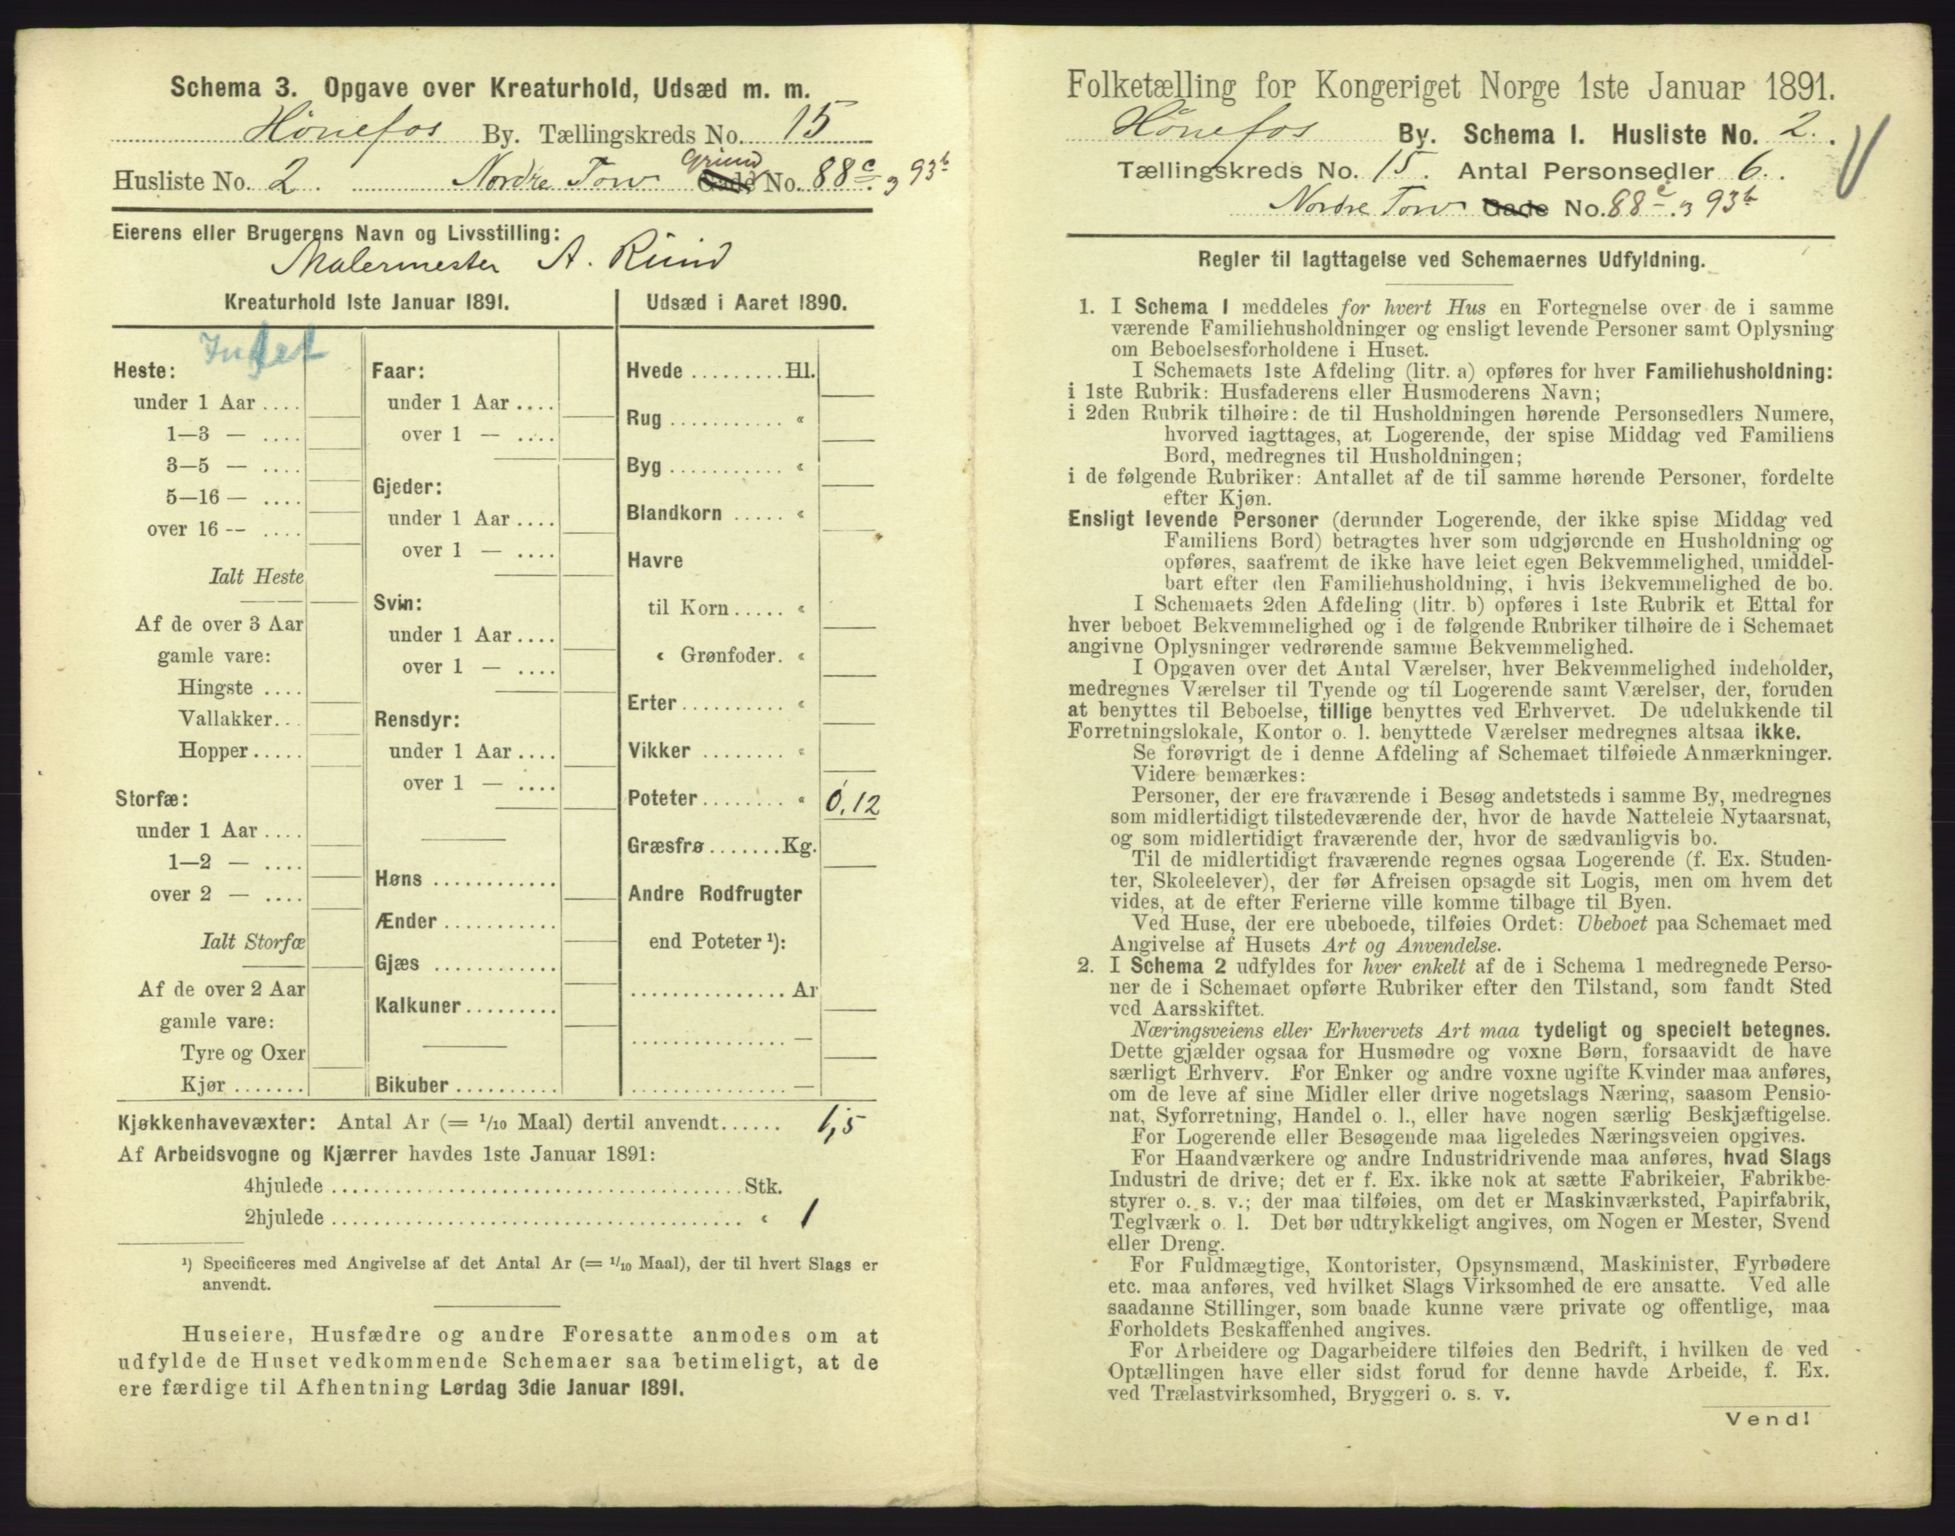 Schema 3. Opgave over Kreaturhold, Udsæd m. m.
Hønefos By. Tællingskreds No. 15
Husliste No. 2. Nordre Torv Gade Grund No. 88c. & 93b
Eierens eller Brugerens Navn og Livsstilling:
Malermester A. Ruud
Kreaturhold 1ste Januar 1891.
Intet
Heste:
under 1 Aar ....
1—3 — ....
3—5 — ....
5—16 — ....
over 16 -- ....
Ialt Heste
Af de over 3 Aar
gamle vare:
Hingste ....
Vallakker...
Hopper.....
Storfæ:
under 1 Aar ....
1—2 — ....
over 2 — ....
Ialt Storfæ
Af de over 2 Aar
gamle vare:
Tyre og Oxer
Kjør .......
Faar:
under 1 Aar ....
over 1 — ....
Gjeder:
under 1 Aar ....
over 1 — ....
Svin:
under 1 Aar ....
over 1 — ....
Rensdyr:
under 1 Aar ....
over 1 — ....
Høns ............
Ænder ...........
Gjæs ............
Kalkuner.........
Bikuber ..........
Udsæd i Aaret 1890.
Hvede .........Hl.
Rug ........... «
Byg ........... «
Blandkorn ..... «
Havre
til Korn ..... «
« Grønfoder. «
Erter.......... «
Vikker ........ «
Poteter........ « 0,12
Græsfrø .......Kg.
Andre Rodfrugter
end Poteter ¹):
............... Ar
............... —
............... —
Kjøkkenhavevæxter: Antal Ar (= 1/10 Maal) dertil anvendt...... 1,5
Af Arbeidsvogne og Kjærrer havdes 1ste Januar 1891:
4hjulede ..................................... Stk.
2hjulede ..................................... « 1
¹) Specificeres med Angivelse af det Antal Ar (= 1/10 Maal), der til hvert Slags er
anvendt.
Huseiere, Husfædre og andre Foresatte anmodes om at
udfylde de Huset vedkommende Schemaer saa betimeligt, at de
ere færdige til Afhentning Lørdag 3die Januar 1891.
Folketælling for Kongeriget Norge 1ste Januar 1891.
Hønefos By. Schema I. Husliste No. 2.
Tællingskreds No. 15. Antal Personsedler 6.
Nordre Torv Gade No. 88c. & 93b
Regler til Iagttagelse ved Schemaernes Udfyldning.
1. I Schema 1 meddeles for hvert Hus en Fortegnelse over de i samme
værende Familiehusholdninger og ensligt levende Personer samt Oplysning
om Beboelsesforholdene i Huset.
I Schemaets 1ste Afdeling (litr. a) opføres for hver Familiehusholdning:
i 1ste Rubrik: Husfaderens eller Husmoderens Navn;
i 2den Rubrik tilhøire: de til Husholdningen hørende Personsedlers Numere,
hvorved iagttages, at Logerende, der spise Middag ved Familiens
Bord, medregnes til Husholdningen;
i de følgende Rubriker: Antallet af de til samme hørende Personer, fordelte
efter Kjøn.
Ensligt levende Personer (derunder Logerende, der ikke spise Middag ved
Familiens Bord) betragtes hver som udgjørende en Husholdning og
opføres, saafremt de ikke have leiet egen Bekvemmelighed, umiddel-
bart efter den Familiehusholdning, i hvis Bekvemmelighed de bo.
I Schemaets 2den Afdeling (litr. b) opføres i 1ste Rubrik et Ettal for
hver beboet Bekvemmelighed og i de følgende Rubriker tilhøire de i Schemaet
angivne Oplysninger vedrørende samme Bekvemmelighed.
I Opgaven over det Antal Værelser, hver Bekvemmelighed indeholder,
medregnes Værelser til Tyende og til Logerende samt Værelser, der, foruden
at benyttes til Beboelse, tillige benyttes ved Erhvervet. De udelukkende til
Forretningslokale, Kontor o. l. benyttede Værelser medregnes altsaa ikke.
Se forøvrigt de i denne Afdeling af Schemaet tilføiede Anmærkninger.
Videre bemærkes:
Personer, der ere fraværende i Besøg andetsteds i samme By, medregnes
som midlertidigt tilstedeværende der, hvor de havde Natteleie Nytaarsnat,
og som midlertidigt fraværende der, hvor de sædvanligvis bo.
Til de midlertidigt fraværende regnes ogsaa Logerende (f. Ex. Studen-
ter, Skoleelever), der før Afreisen opsagde sit Logis, men om hvem det
vides, at de efter Ferierne ville komme tilbage til Byen.
Ved Huse, der ere ubeboede, tilføies Ordet: Ubeboet paa Schemaet med
Angivelse af Husets Art og Anvendelse.
2. I Schema 2 udfyldes for hver enkelt af de i Schema 1 medregnede Perso-
ner de i Schemaet opførte Rubriker efter den Tilstand, som fandt Sted
ved Aarsskiftet.
Næringsveiens eller Erhvervets Art maa tydeligt og specielt betegnes.
Dette gjælder ogsaa for Husmødre og voxne Børn, forsaavidt de have
særligt Erhverv. For Enker og andre voxne ugifte Kvinder maa anføres,
om de leve af sine Midler eller drive nogetslags Næring, saasom Pensio-
nat, Syforretning, Handel o. l., eller have nogen særlig Beskjæftigelse.
For Logerende eller Besøgende maa ligeledes Næringsveien opgives.
For Haandværkere og andre Industridrivende maa anføres, hvad Slags
Industri de drive; det er f. Ex. ikke nok at sætte Fabrikeier, Fabrikbe-
styrer o. s. v.; der maa tilføies, om det er Maskinværksted, Papirfabrik,
Teglværk o. l. Det bør udtrykkeligt angives, om Nogen er Mester, Svend
eller Dreng.
For Fuldmægtige, Kontorister, Opsynsmænd, Maskinister, Fyrbødere
etc. maa anføres, ved hvilket Slags Virksomhed de ere ansatte. Ved alle
saadanne Stillinger, som baade kunne være private og offentlige, maa
Forholdets Beskaffenhed angives.
For Arbeidere og Dagarbeidere tilføies den Bedrift, i hvilken de ved
Optællingen have eller sidst forud for denne havde Arbeide, f. Ex.
ved Trælastvirksomhed, Bryggeri o. s. v.
Vend!